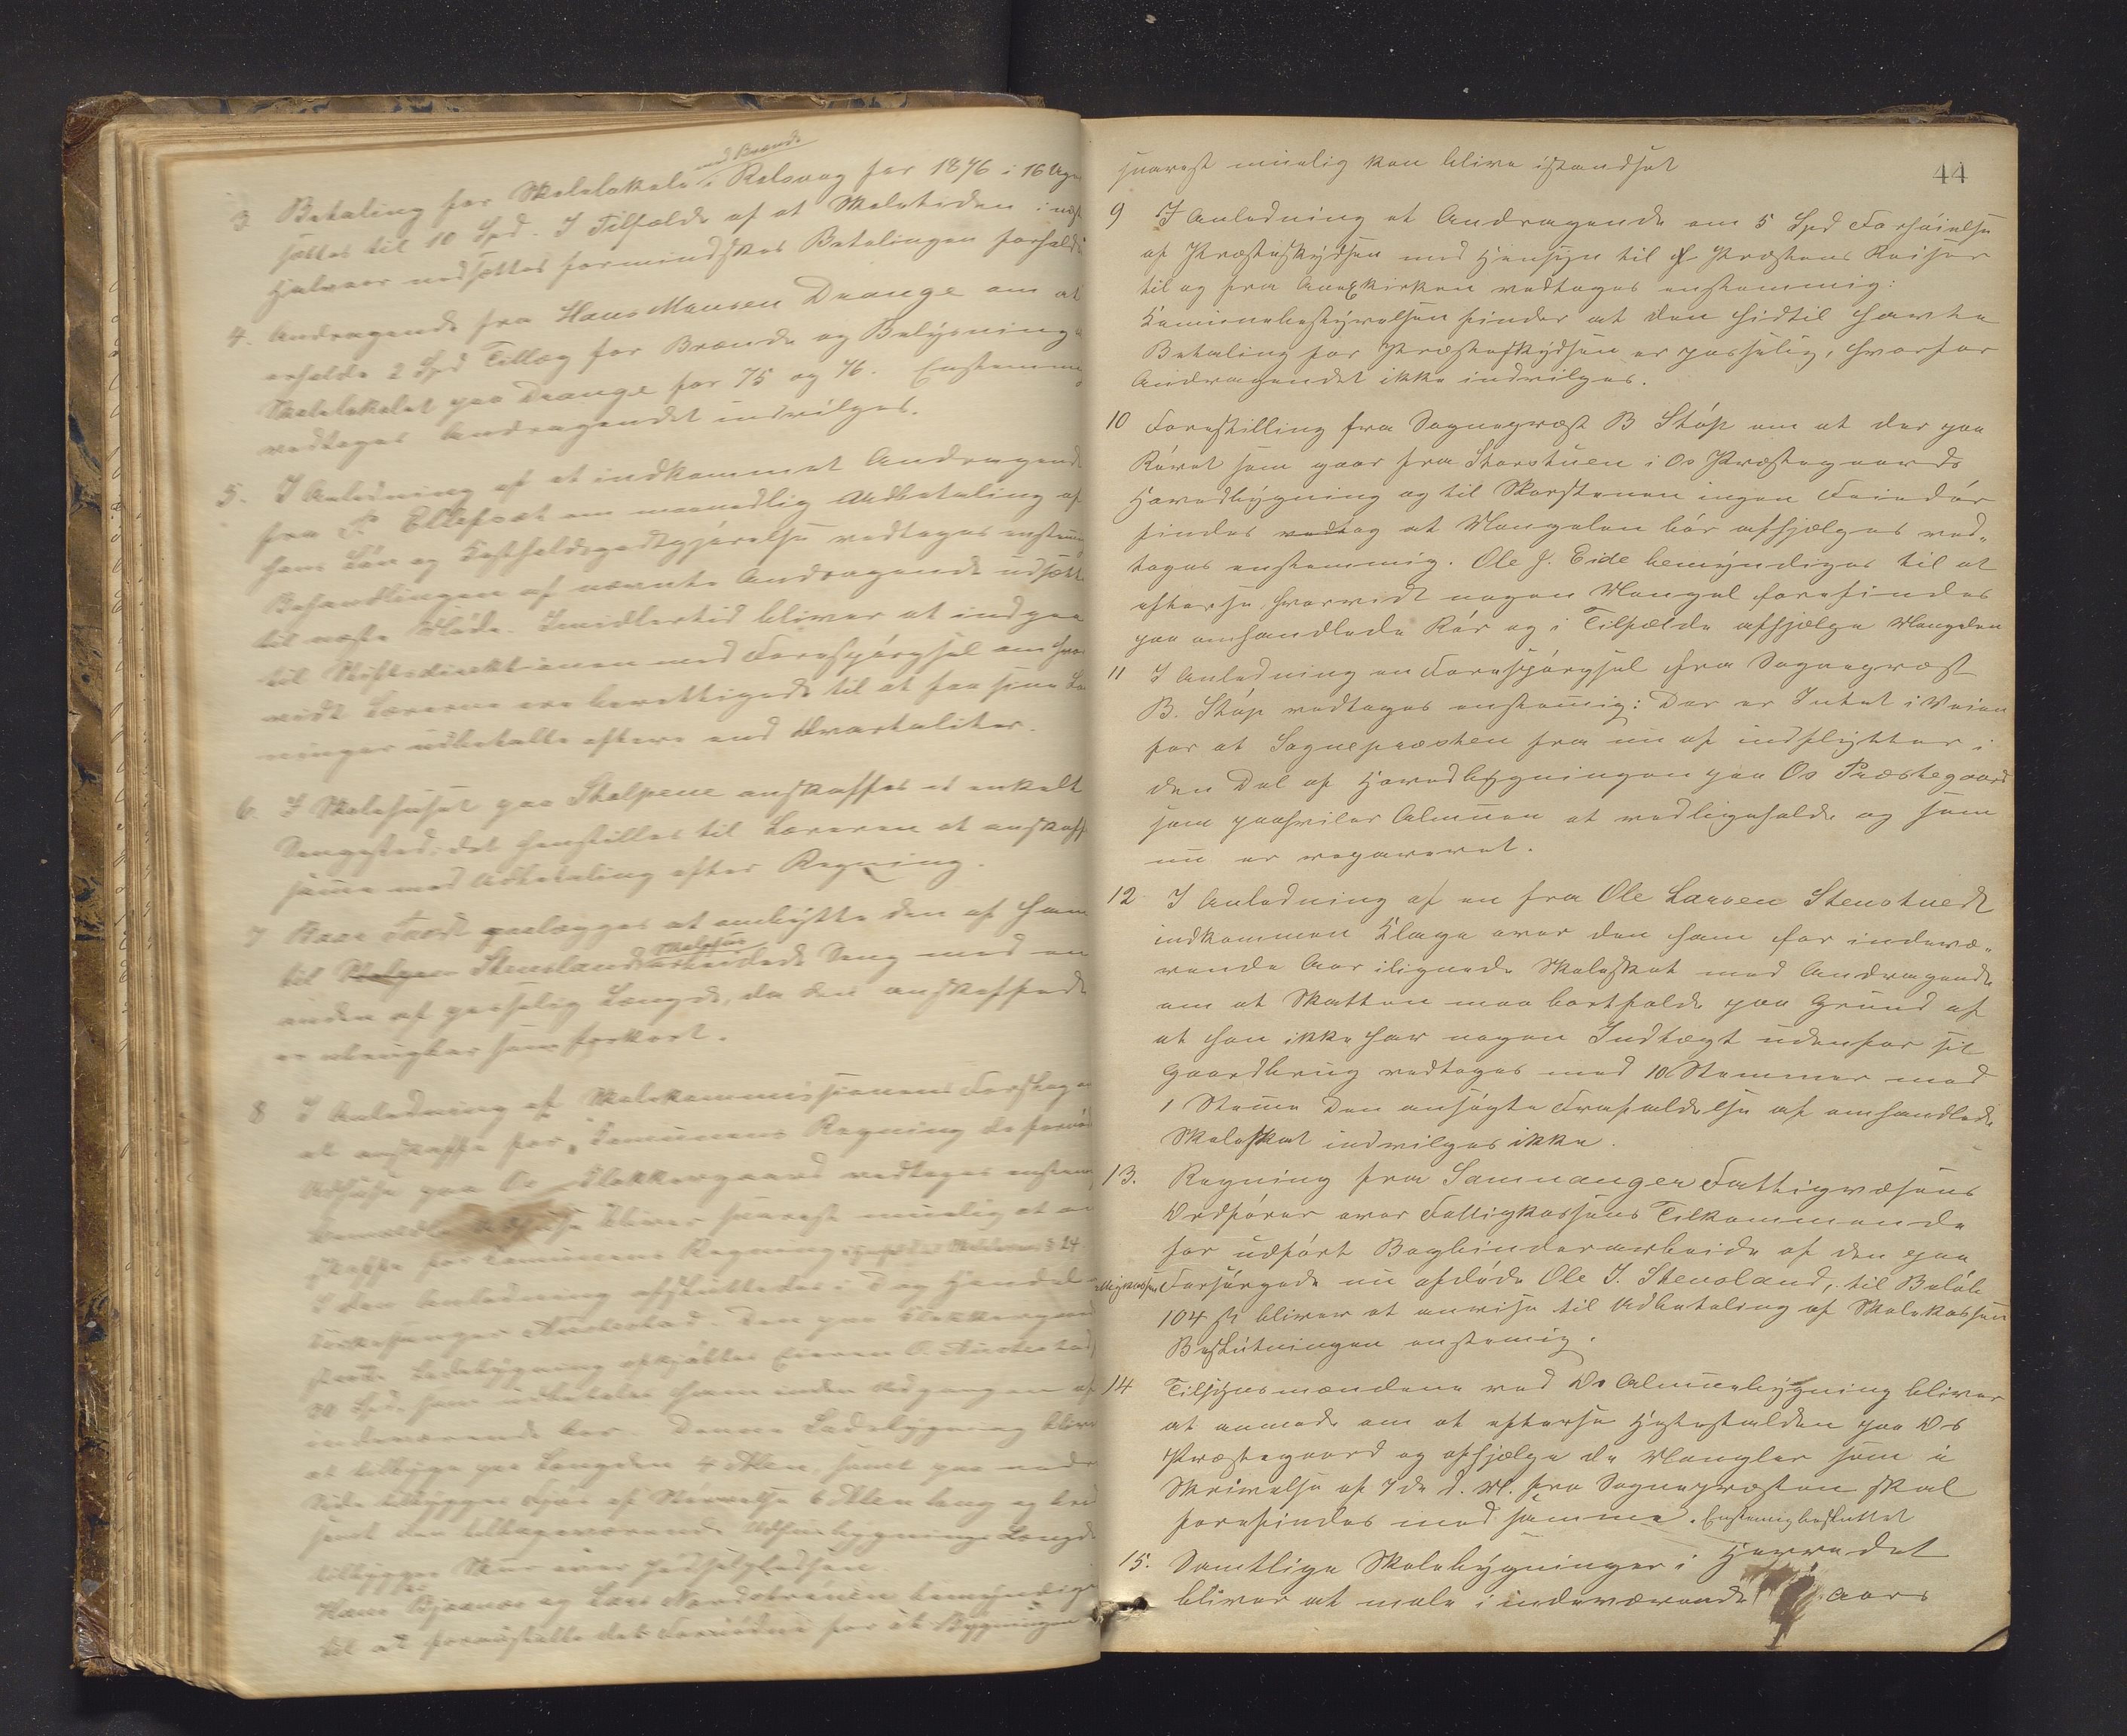 med Brænde
3 Betaling for Skolelokale i Røtsvaag for 1876 i 16 Uger
sættes til 10 Spd. I Tilfælde af at Skoletiden i
Halvaar nedsættes formindskes Betalingen
4. Andragende fra Hans Monsen Drange om at
erholde 2 Spd Tillæg for Brænde og Belysning
Skolelokalet paa Drange for 75 og 76. Enstemmig
vedtoges Andragendet indvilges.
5. I Anledning af et indkommet Andragende
fra P. Ellefsæt om maanedlig Udbetaling af
hans Løn og Kostholdsgodtgjørelse vedtoges
Behandlingen af nævnte Andragende udsættes
til næste Møde. Imidlertid bliver at indgaa
til Stiftsdirektionen med Forespørgsel om
vidt Lærerne ere berettigede til at faa sine
ninger udbetalte oftere end Kvartaliter.
6. I Skolehuset paa Skolpene anskaffes et enkelt
Sengested; det henstilles til Læreren at anskaffe
samme mod Udbetaling efter Regning.
7 paalægges at ombytte den af ham
til Stenslands Skolehus arbeidede Seng med en
anden af passelig Længde, da den anskaffede
er ubrugbar som forkort.
8 I Anledning af Skolekommissionens Forslag om
at anskaffe for Komunens Regning de
Udhuse paa Os Klokkergaard vedtoges
bliver snarest muelig at
skaffe for Komunens Regning
I den Anledning afsluttedes i Dag Handel
Kirkesanger Austestad. Den paa Klokkergaard
Ladebygning afkjøbtes Eieren Austestad
30 Spd. som udbetales ham inden Udgangen af
indeværende Aar. Denne Ladebygning bliver
at tilbygge paa Længden 4 Alen, samt paa
Side tilbygges af Størrelse 6 Alen lang og
samt den tilbageværende Udhusbygnings Længde
tilbygges Skur over
Hans Bjørnæs og Lars Nordstrønen bemyndiges
til at foranstalte det Fornødne for at Bygningen
44
snarest muelig kan blive istandsat
9 I Anledning et Andragende om 5 Spd Forhøielse
af Præsteskydsen med Hensyn til Præstens Reiser
til og fra Anexkirken vedtoges enstemmig:
Komunebestyrelsen finder at den hidtil havte
Betaling for Præsteskydsen er passelig, hvorfor
Andragendet ikke indvilges.
10 Forestilling fra Sognepræst B Støp om at der paa
Røret som gaar fra Storstuen i Os Præstegaards
Hovedbygning og til Skorstenen ingen Feiedør
findes og at Mangelen bør afhjælpes ved-
toges enstemmig. Ole J. Eide bemyndiges til at
efterse hvorvidt nogen Mangel forefindes
paa omhandlede Rør og i Tilfælde afhjælpe Mangelen
11 I Anledning en Forespørgsel fra Sognepræst
B. Støp vedtoges enstemig: Der er Intet i Veien
for at Sognepræsten fra nu af indflytter i
den Del af Hovedbygningen paa Os Præstegaard
som paahviler Almuen at vedligeholde og som
nu er repareret.
12 I Anledning af en fra Ole Larsen Stenstvedt
indkommen Klage over den ham for indevæ-
rende Aar ilignede Skoleskat med Andragende
om at Skatten maa bortfalde paa Grund af
at han ikke har nogen Indtægt udenfor sit
Gaardbrug vedtoges med 10 Stemmer mod
1 Stemme Den ansøgte Frafaldelse af omhandlede
Skoleskat indvilges ikke.
13. Regning fra Samnanger Fattigvæsens
Ordfører over Fattigkassens Tilkommende
for udført Bogbinderarbeide af den paa
Fattigkassen Forsørgede nu afdøde Ole J. Stensland, til Beløb
104 ß bliver at anvise til Udbetaling af Skolekassen
Beslutningen enstemig.
14 Tilsynsmændene ved Os Almuebygning bliver
at anmode om at efterse Hestestalden paa Os
Præstegaard og afhjælpe de Mangler som i
Skrivelse af 7de d. M. fra Sognepræsten skal
forefindes med samme. Enstemig besluttet
15. Samtlige Skolebygninger i Herredet
bliver at male i indeværende Aars